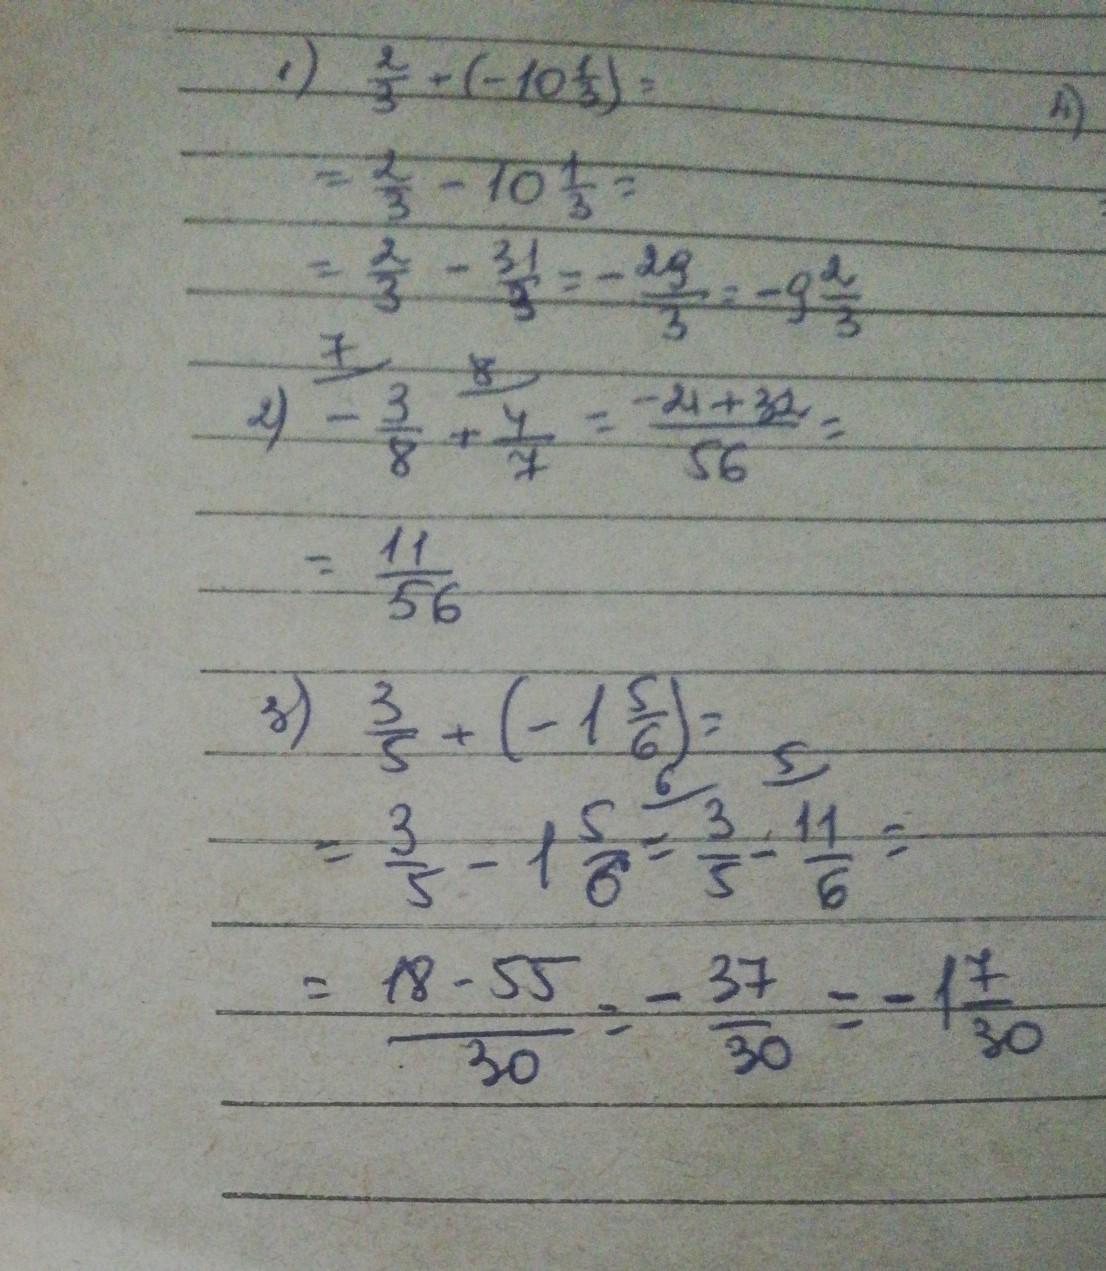 1) 2/3 + (-10 1/3) =
= 2/3 - 10 1/3 =
= 2/3 - 31/3 = - 29/3 = -9 2/3
7 8
2) - 3/8 + 4/7 = -21+32/56 =
= 11/56
3) 3/5 + (-1 5/6) =
6 5
= 3/5 - 1 5/6 = 3/5 - 11/6 =
= 18-55/30 = - 37/30 = -1 7/30
4)
=